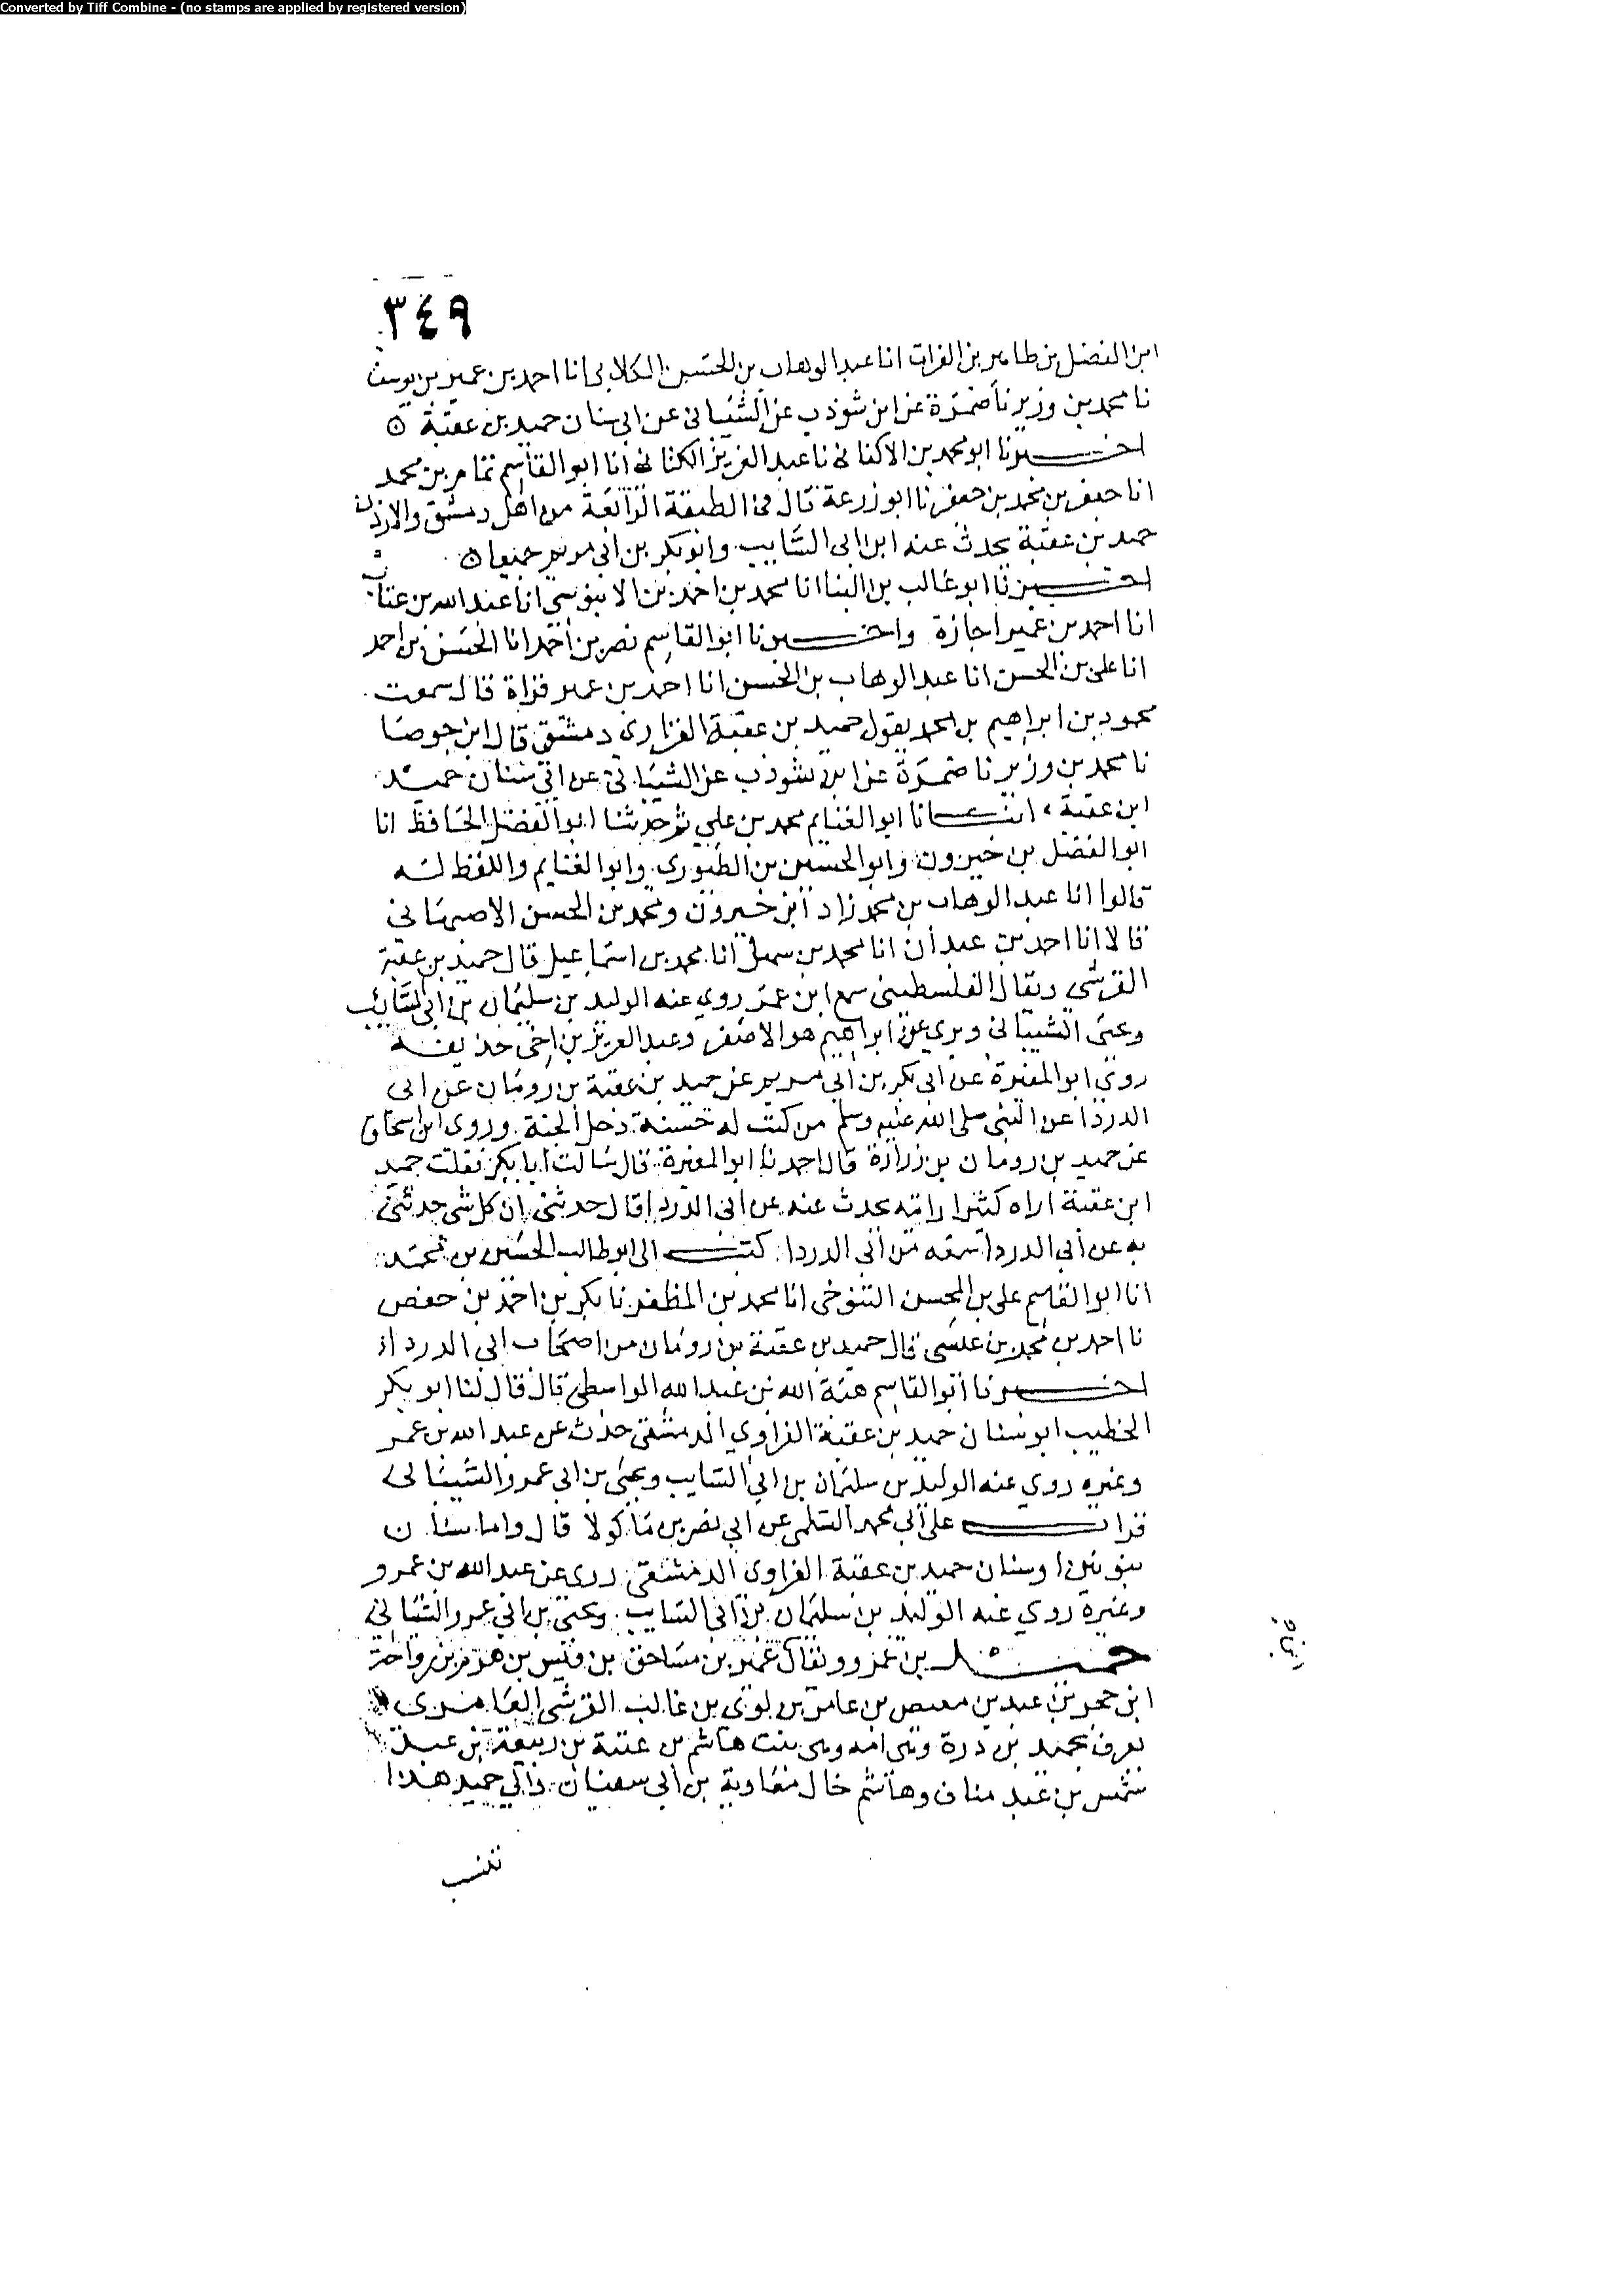 Converted by Tiff Combine - (no stamps are applied by registered version)
٣٤٩
ابن الفضل بن طاهر بن الفرات انا عبد الوهاب بن الحسن الكلابي انا احمد بن عمير بن يوسف
نا محمد بن وزير نا ضمرة عن ابن شوذب عن الشيباني عن ابي سنان حميد بن عقبة ه
اخبرنا ابو محمد بن الاكفاني نا عبد العزيز الكتاني انا ابو القاسم تمام بن محمد
انا جعفر بن محمد بن جعفر نا ابو زرعة قال في الطبقة الرابعة من اهل دمشق والاردن
حميد بن عقبة يحدث عنه ابن ابي السايب وابو بكر بن ابي مريم جميعا ه
اخبرنا ابو غالب بن البنا انا محمد بن احمد بن الابنوسي انا عبد الله بن عتاب
انا احمد بن عمير اجازة واخبرنا ابو القاسم نصر بن احمد انا الحسن بن احمد
انا علي بن الحسن انا عبد الوهاب بن الحسن انا احمد بن عمير قراة قال سمعت
محمود بن ابراهيم بن محمد يقول حميد بن عقبة الفزاري دمشقي قال ابن جوصا
نا محمد بن وزير نا ضمرة عن ابن شوذب عن الشيباني عن ابي سنان حميد
ابن عقبة، انبانا ابو الغنايم محمد بن علي ثم حدثنا ابو الفضل الحافظ انا
ابو الفضل بن خيرون وابو الحسين بن الطيوري وابو الغنايم واللفظ له
قالوا انا عبد الوهاب بن محمد زاد ابن خيرون ومحمد بن الحسن الاصبهاني
قالا انا احمد بن عبدان انا محمد بن سهل انا محمد بن اسماعيل قال حميد بن عقبة
القرشي ويقال الفلسطيني سمع ابن عمر روي عنه الوليد بن سليمان بن ابي السائب
وعيى الشيباني ويرى عون ابراهيم هو الاصفر وعبد العزيز بن اخي حذيفة
روى ابو المغيرة عن ابي بكر بن ابي مريم عن حميد بن عقبة بن رومان عن ابي
الدردا عن النبي صلى الله عليه وسلم من كتب له حسنة دخل الجنة وروى ابن اسحاق
عن حميد بن رومان بن زرارة قال احمد نا ابو المغيرة قال سالت ابا بكر فقلت حميد
ابن عقبة اراه كثيرا رايته يحدث عنه عن ابي الدردا قال حدثني ان كل شي حدثني
به عن ابي الدردا سمعه من ابي الدردا كتب الى ابو طالب الحسين بن محمد
انا ابو القاسم علي بن المحسن التنوخي انا محمد بن المظفر نا بكر بن احمد بن حفص
نا احمد بن محمد بن عيسى قال حميد بن عقبة بن رومان من اصحاب ابي الدرداء
اخبرنا ابو القاسم هبة الله بن عبد الله الواسطي قال قال لنا ابو بكر
الخطيب ابو سنان حميد بن عقبة الفزاوي الدمشقي حدث عن عبد الله بن عمر
وغيره روي عنه الوليد بن سليمان بن ابي السايب ويحيى بن ابي عمرو الشيباني
قرات على ابي محمد السلمي عن ابي نصر بن ماكولا قال واما سنان
بنونين ابو سنان حميد بن عقبة الفزاوي الدمشقي روى عن عبد الله بن عمرو
وغيره روي عنه الوليد بن سليمان بن ابي السايب ويحيى بن ابي عمرو الشيباني
حميد بن عمرو ويقال عمير بن مساحق بن قيس بن هرم بن رواحة
ابن حجر بن عبد بن معيص بن عامر بن لوي بن غالب القرشي العامري
يعرف بحميد بن درة وهي امه وهي بنت هاشم بن عتبة بن ربيعة بن عبد
شمس بن عبد مناف وهاشم خال معاوية بن ابي سفيان والي حميد هذا
تنسب